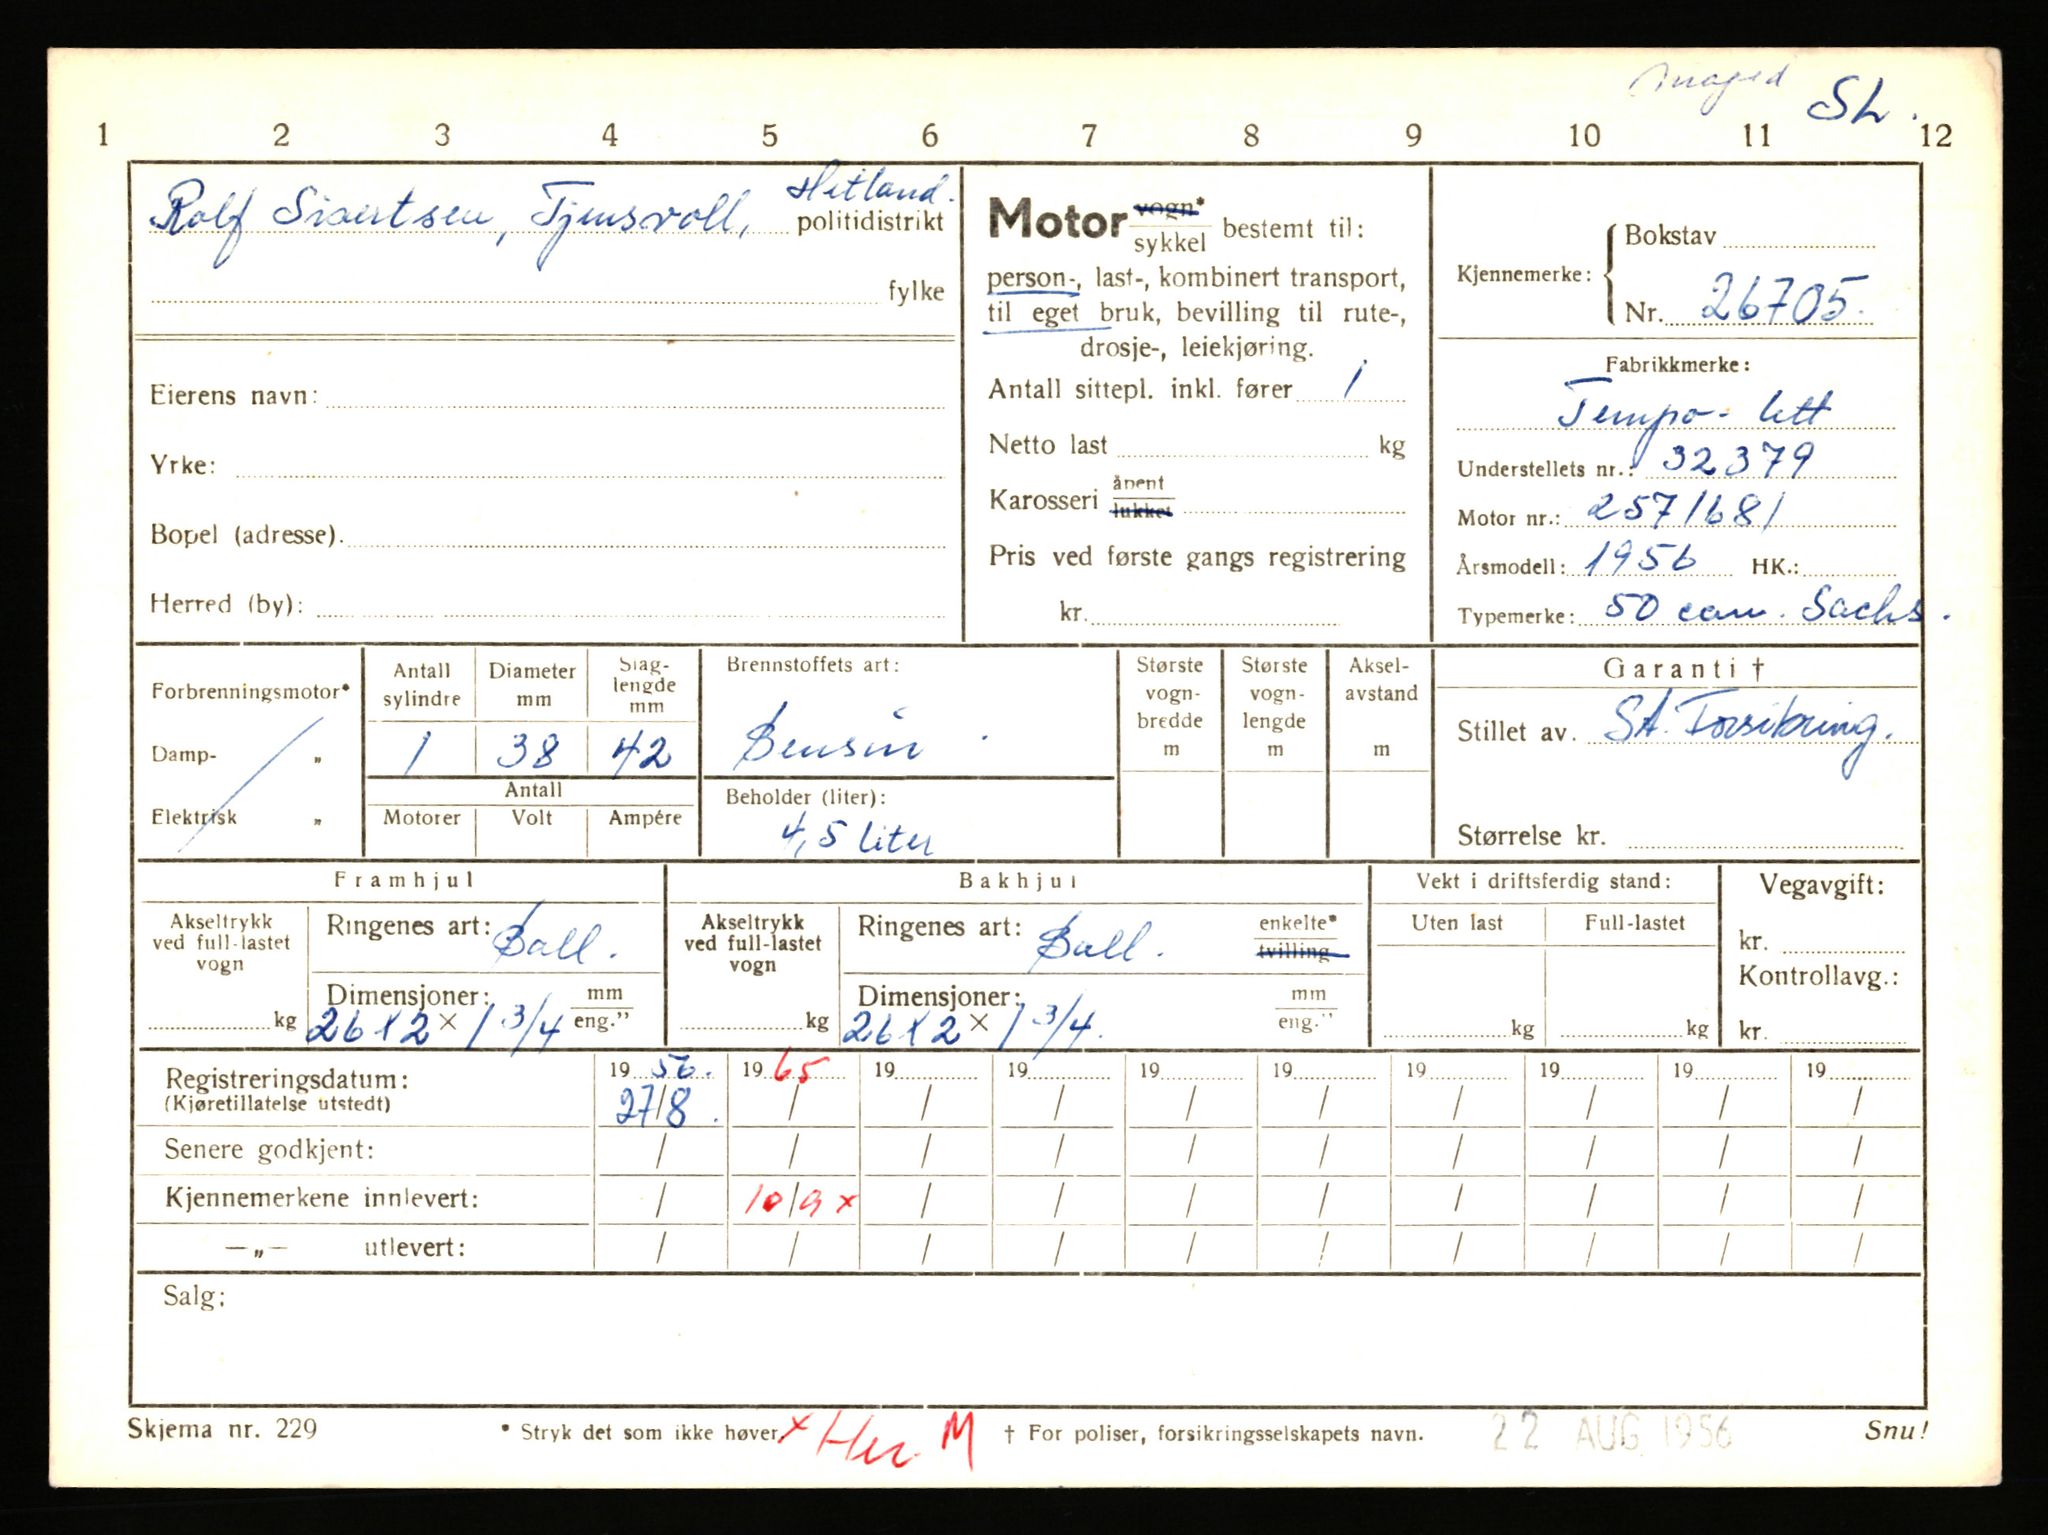 SL.
1 2 3 4 5 6 7 8 9 10 11 12
Rolf Sivertsen, Tjensvoll, Hetland.
politidistrikt
fylke
Eierens navn:
Yrke:
Bopel (adresse).
Herred (by):
Motor vogn*
sykkel bestemt til:
person-, last-, kombinert transport,
til eget bruk, bevilling til rute-,
drosje-, leiekjøring.
Antall sittepl. inkl. fører 1
Netto last kg
Karosseri åpent
lukket
Pris ved første gangs registrering
kr.
Kjennemerke: Bokstav
Nr. 26705.
Fabrikkmerke:
Tempo-lett
Understellets nr.: 32379
Motor nr.: 2571681
Årsmodell: 1956 HK.:
Typemerke: 50 ccm. Sachs.
Forbrenningsmotor*
Damp- „
Elektrisk „
Antall sylindre
1
Diameter mm
38
Slag-lengde mm
42
Antall
Motorer Volt Ampére
Brennstoffets art:
Bensin.
Beholder (liter):
4,5 liter
Største vogn-bredde m
Største vogn-lengde m
Aksel-avstand m
Garanti †
Stillet av. SA. Forsikring.
Størrelse kr.
Framhjul
Akseltrykk ved full-lastet vogn
kg
Ringenes art: Ball.
Dimensjoner: mm
26 x 2 x 1 3/4 eng."
Bakhjul
Akseltrykk ved full-lastet vogn
kg
Ringenes art: Ball. enkelte*
tvilling
Dimensjoner: mm
26 x 2 x 1 3/4. eng."
Vekt i driftsferdig stand:
Uten last Full-lastet
kg kg
Vegavgift:
kr.
Kontrollavg.:
kr.
Registreringsdatum: 19 56. 19 65 19 19 19 19 19 19 19 19
(Kjøretillatelse utstedt) 27/8. / / / / / / / / /
Senere godkjent: / / / / / / / / / /
Kjennemerkene innlevert: / 10/9 x / / / / / / / /
—„— utlevert: / / / / / / / / / /
Salg:
Skjema nr. 229
* Stryk det som ikke høver.
x Her. M
† For poliser, forsikringsselskapets navn.
22 AUG 1956
Snu!